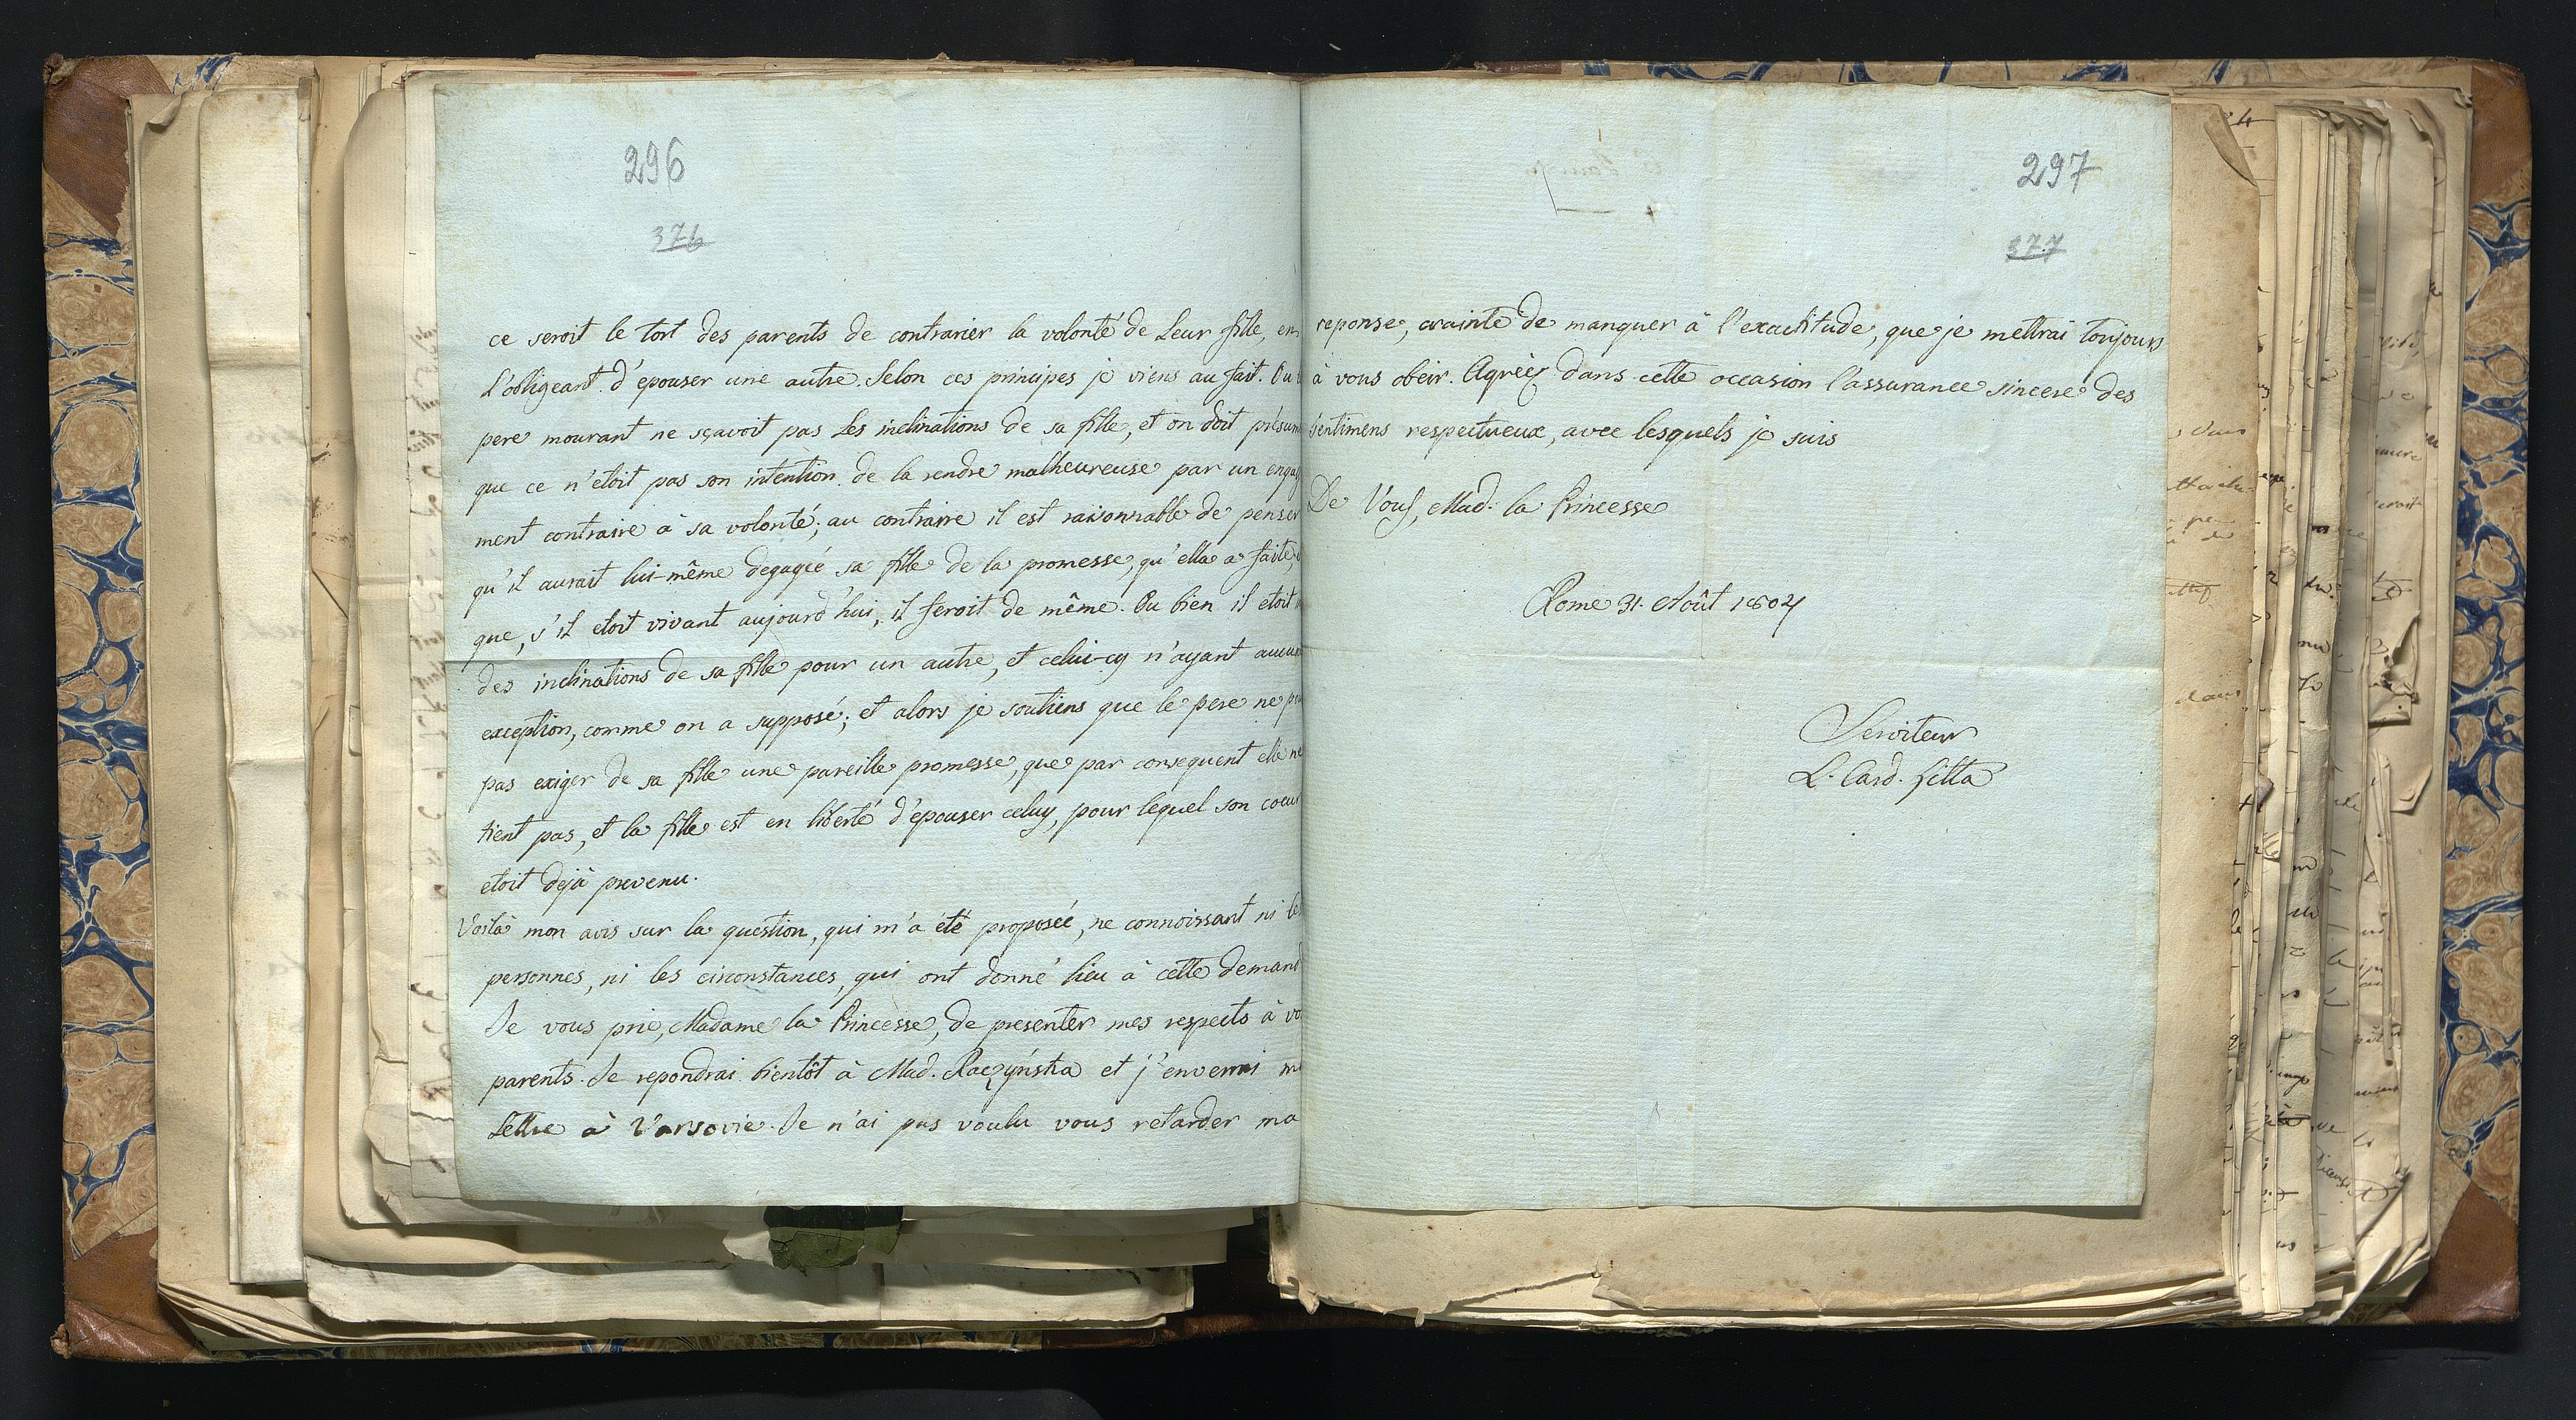 296
376
ce seroit le tort des parents de contrarier la volonté de Leur fille, en
L'obligeant d'epouser une autre. Selon ces principes je viens au fait. Ou
pere mourant ne sçavoit pas Les inclinations de sa fille, et on doit présum
que ce n'étoit pas son intention de la rendre malheureuse par un engag
ment contraire à sa volonté; au contraire il est raisonnable de penser
qu'il aurait lui-même degagée sa fille de la promesse, qu'elle a faite,
que, s'il etoit vivant aujourd'hui, il feroit de même. Ou bien il etoit
des inclinations de sa fille pour un autre, et celui-cy n'ayant aucun
exception, comme on a supposé; et alors je soutiens que le pere ne p
pas exiger de sa fille une pareille promesse, que par consequent elle ne
tient pas, et la fille est en liberté d'épouser celuy, pour lequel son coeur
etoit déjà prevenu.
Voilà mon avis sur la question, qui m'a été proposée, ne connoissant ni les
personnes, ni les circonstances, qui ont donné lieu à cette demand
Je vous prie, Madame la Princesse, de presenter mes respects à vo
parents. Je repondrai bientôt à Mad. Raczyńska et j'enverrai m
Lettre à Varsovie. Je n'ai pas voulu vous retarder ma
297
377
reponse, crainte de manquer à l'exactitude, que je mettrai toujours
à vous obeir. Agréez dans cette occasion l'assurance sincere des
sentimens respectueux, avec lesquels je suis
De Vous, Mad. la Princesse
Rome 31. Août 1804
Serviteur
L. Card. Litta